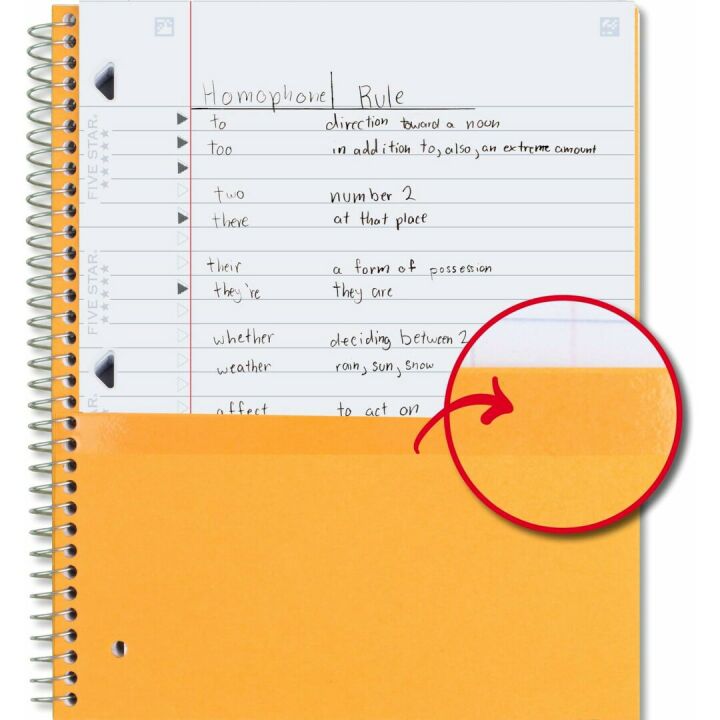 Homophone Rule
to direction toward a noun
too in addition to, also, an extreme amount
two number 2
there at that place
their a form of possession
they're they are
whether deciding between 2
weather rain, sun, snow
affect to act on
FIVE STAR.
FIVE STAR.
AR.